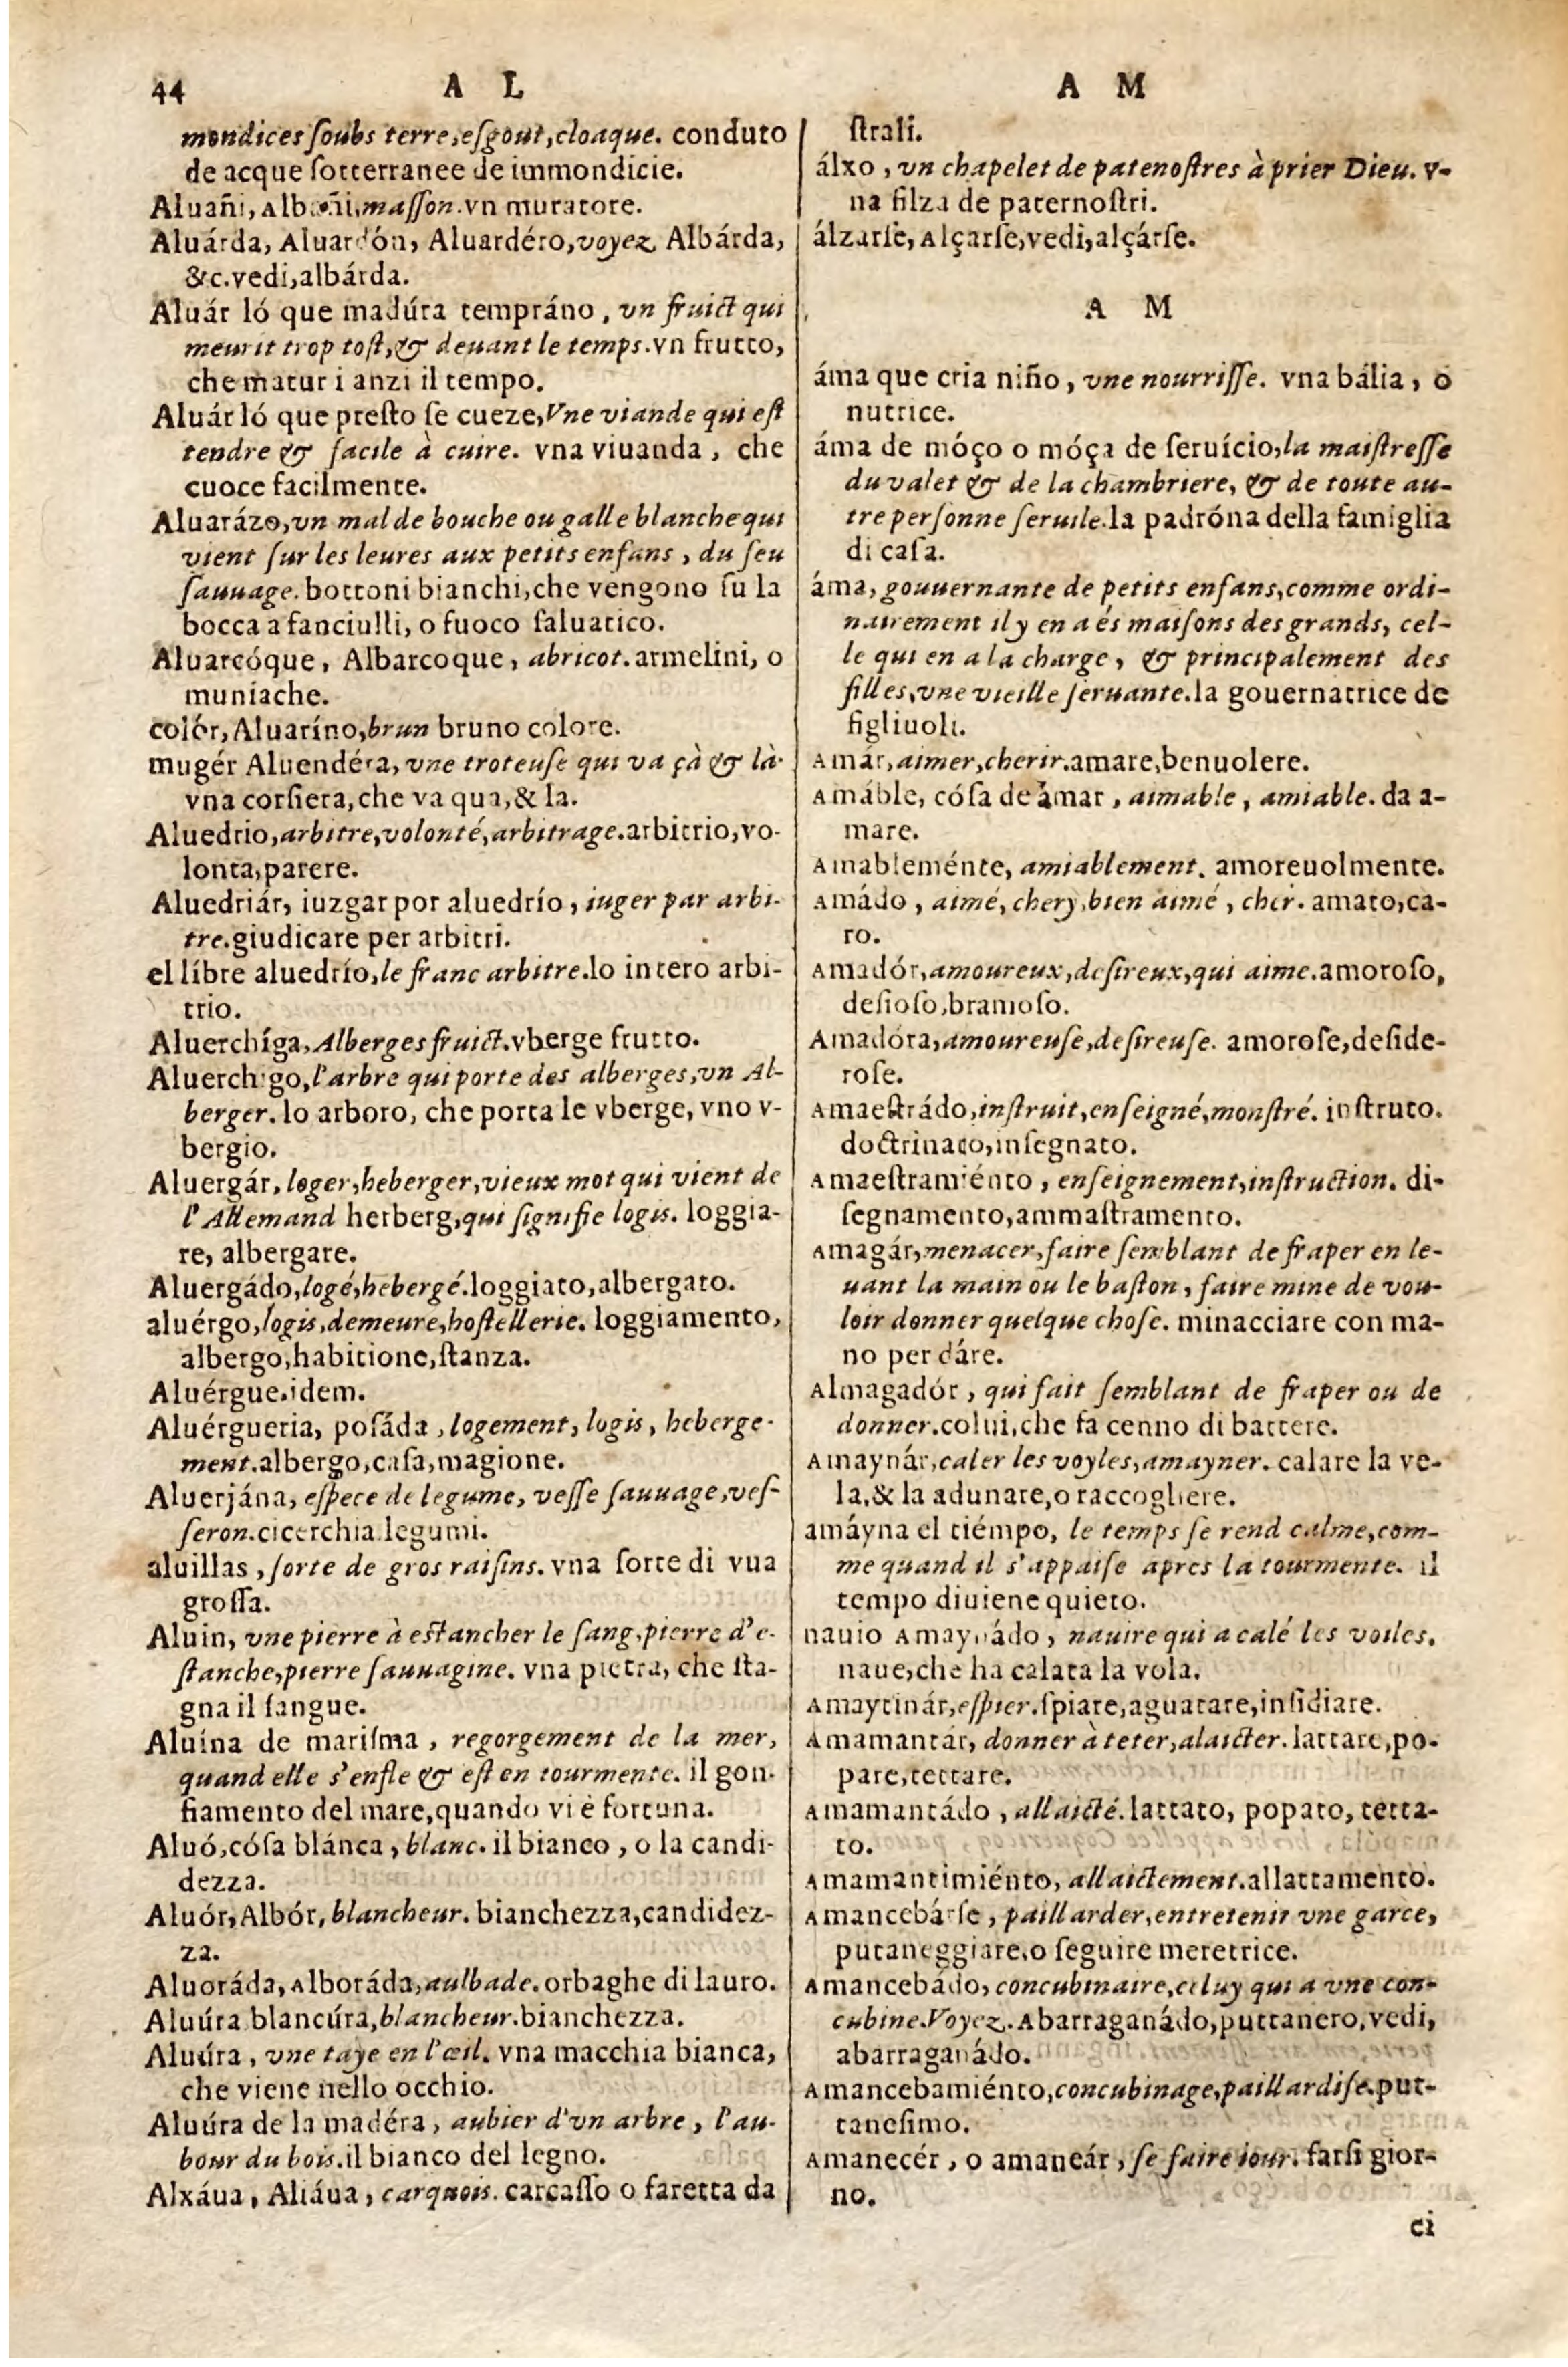 44 A L A M
mondices ſoubs terre, eſgout, cloaque. conduto
de acque ſotterranee de immondicie.
Aluañi, Albañi, maſſon. vn muratore.
Aluárda, Aluardón, Aluardéro, voyez Albárda,
&c. vedi, albárda.
Aluár ló que madúra tempráno, vn fruict qui
meurit trop toſt, & deuant le temps. vn frutto,
che maturi anzi il tempo.
Aluár ló que preſto ſe cueze, Vne viande qui eſt
tendre & facile à cuire. vna viuanda, che
cuoce facilmente.
Aluarázo, vn mal de bouche ou galle blanche qui
vient ſur les leures aux petits enfans, du feu
ſauuage. bottoni bianchi, che vengono ſu la
bocca a fanciulli, o fuoco ſaluatico.
Aluarcóque, Albarcoque, abricot. armelini, o
muniache.
colór, Aluaríno, brun bruno colore.
mugér Aluendéra, vne troteuſe qui va çà & là.
vna corſiera, che va qua, & la.
Aluedrio, arbitre, volonté, arbitrage. arbitrio, vo-
lonta, parere.
Aluedriár, iuzgar por aluedrío, iuger par arbi-
tre. giudicare per arbitri.
el líbre aluedrío, le franc arbitre. lo intero arbi-
trio.
Aluerchíga, Alberges fruict. vberge frutto.
Aluerchigo, l'arbre qui porte des alberges, vn Al-
berger. lo arboro, che porta le vberge, vno v-
bergio.
Aluergár, loger, heberger, vieux mot qui vient de
l'Allemand herberg, qui ſignifie logis. loggia-
re, albergare.
Aluergádo, logé, hebergé. loggiato, albergato.
aluérgo, logis, demeure, hoſtellerie. loggiamento,
albergo, habitione, ſtanza.
Aluérgue. idem.
Aluérgueria, poſáda, logement, logis, heberge-
ment. albergo, caſa, magione.
Aluerjána, eſpece de legume, veſſe ſauuage, veſ-
ſeron. cicerchia legumi.
aluillas, ſorte de gros raiſins. vna ſorte di vua
groſſa.
Aluin, vne pierre à eſtancher le ſang, pierre d'e-
ſtanche, pierre ſauuagine. vna pietra, che ſta-
gna il ſangue.
Aluína de mariſma, regorgement de la mer,
quand elle s'enfle & eſt en tourmente. il gon-
fiamento del mare, quando vi è fortuna.
Aluó, cóſa blánca, blanc. il bianco, o la candi-
dezza.
Aluór, Albór, blancheur. bianchezza, candidez-
za.
Aluoráda, Alboráda, aulbade. orbaghe di lauro.
Aluúra blancúra, blancheur. bianchezza.
Aluúra, vne taye en l'œil. vna macchia bianca,
che viene nello occhio.
Aluúra de la madéra, aubier d'vn arbre, l'au-
bour du bois. il bianco del legno.
Alxáua, Aliáua, carquois. carcaſſo o faretta da
ſtrali.
álxo, vn chapelet de patenoſtres à prier Dieu. v-
na filza de paternoſtri.
álzarſe, Alçarſe, vedi, alçárſe.
A M
áma que cria niño, vne nourriſſe. vna bália, o
nutrice.
áma de móço o móça de ſeruício, la maiſtreſſe
du valet & de la chambriere, & de toute au-
tre perſonne ſeruile. la padróna della famiglia
di caſa.
áma, gouuernante de petits enfans, comme ordi-
nairement il y en a és maiſons des grands, cel-
le qui en a la charge, & principalement des
filles, vne vieille ſeruante. la gouernatrice de
figliuoli.
Amár, aimer, cherir. amare, benuolere.
Amáble, cóſa de àmar, aimable, amiable. da a-
mare.
Amableménte, amiablement. amoreuolmente.
Amádo, aimé, chery, bien aimé, cher. amato, ca-
ro.
Amadór, amoureux, deſireux, qui aime. amoroſo,
deſioſo, bramoſo.
Amadóra, amoureuſe, deſireuſe. amoroſe, deſide-
roſe.
Amaeſtrádo, inſtruit, enſeigné, monſtré. inſtruto.
doctrinato, inſegnato.
Amaeſtramiénto, enſeignement, inſtruction. di-
ſegnamento, ammaſtramento.
Amagár, menacer, faire ſemblant de fraper en le-
uant la main ou le baſton, faire mine de vou-
loir donner quelque choſe. minacciare con ma-
no per dáre.
Almagadór, qui fait ſemblant de fraper ou de
donner. colui, che fa cenno di battere.
Amaynár, caler les voyles, amayner. calare la ve-
la, & la adunare, o raccogliere.
amáyna el tiémpo, le temps ſe rend calme, com-
me quand il s'appaiſe apres la tourmente. il
tempo diuiene quieto.
nauio Amaynádo, nauire qui a calé les voiles.
naue, che ha calata la vola.
Amaytinár, eſpier. ſpiare, aguatare, inſidiare.
Amamantár, donner à teter, alaicter. lattare, po-
pare, tettare.
Amamantádo, allaicté. lattato, popato, tetta-
to.
Amamantimiénto, allaictement. allattamento.
Amancebárſe, paillarder, entretenir vne garce,
putaneggiare, o ſeguire meretrice.
Amancebádo, concubinaire, celuy qui a vne con-
cubine. Voyez. Abarraganádo, puttanero, vedi,
abarraganádo.
Amancebamiénto, concubinage, paillardiſe. put-
taneſimo.
Amanecér, o amaneár, ſe faire iour. farſi gior-
no.
ci